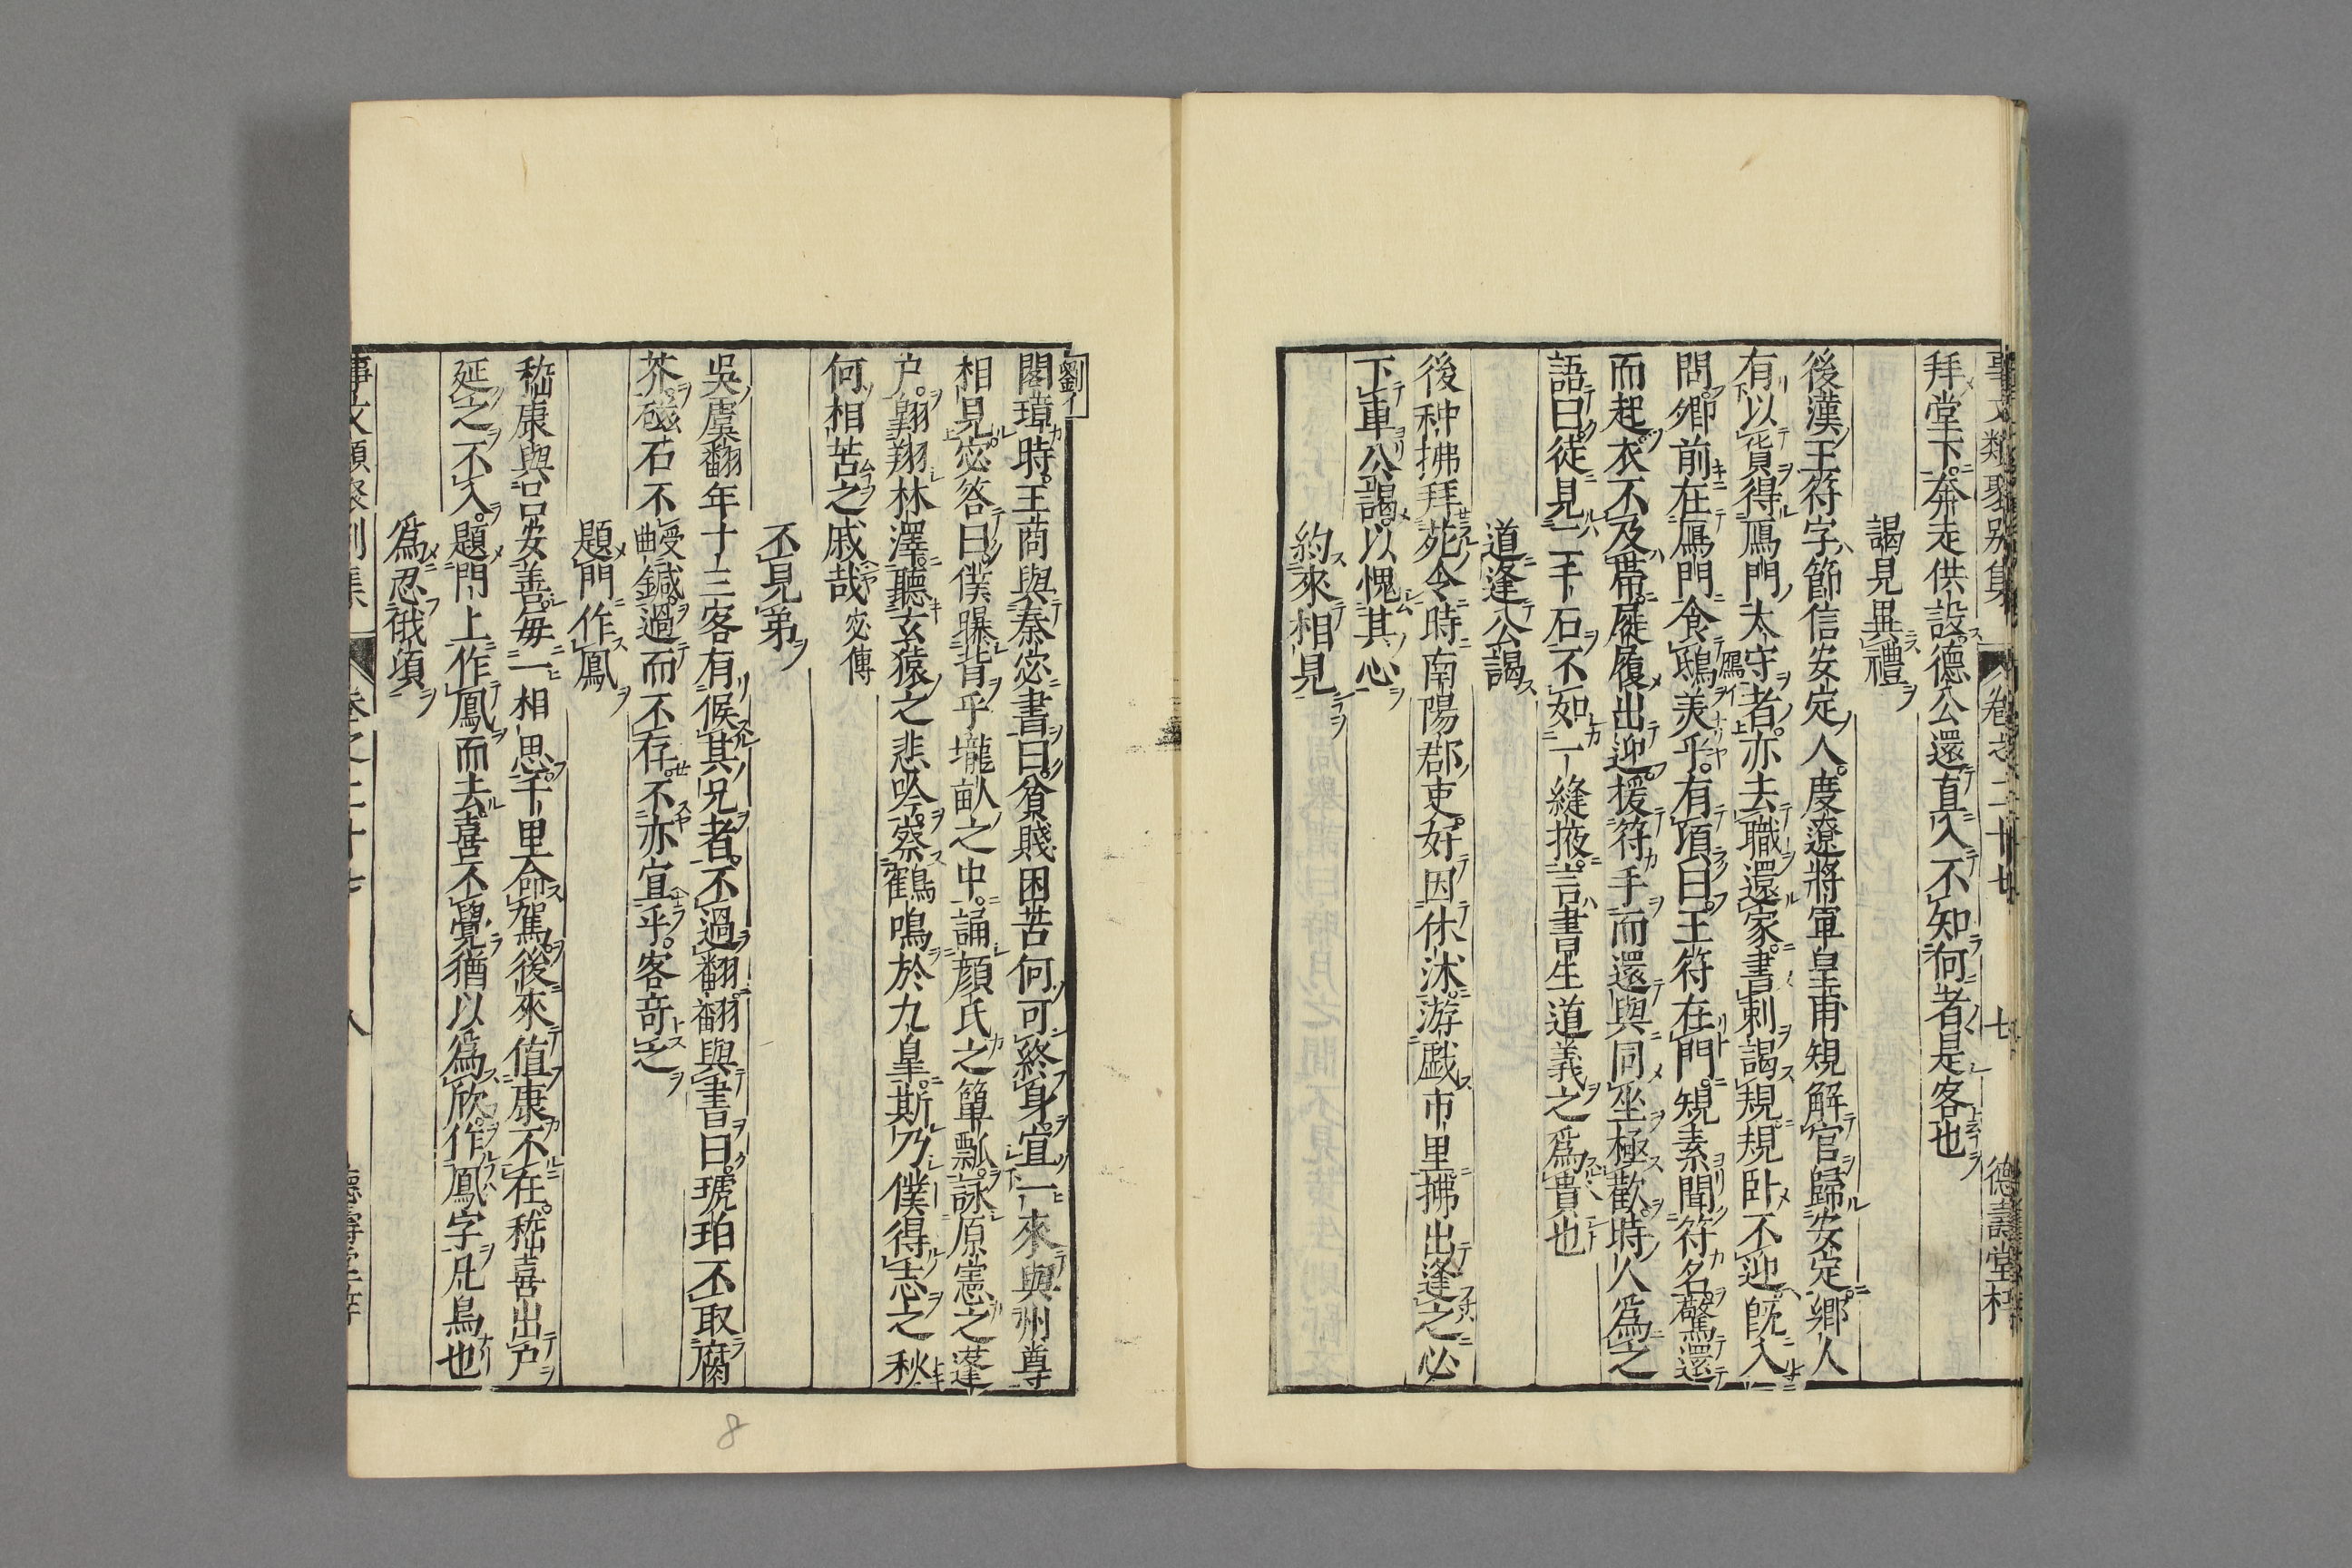 事文類聚別集 卷之二十七 七 德壽堂梓
拜堂下奔走供設德公還直入不知何者是客也
謁見異禮
後漢王符字節信安定人度遼將軍皇甫規解官歸安定鄉人
有以貨得鴈門太守者亦去職還家書刺謁規規卧不迎既入
問卿前在鴈門食鴈美乎有頃白王符在門規素聞符名驚還
而起衣不及帶屣履出迎援符手而還與同坐極歡時人為之
語曰徒見二千石不如一縫掖言書生道義之為貴也
道逢公謁
後种拂拜苑令時南陽郡吏好因休沐游戲市里拂出逢之必
下車公謁以愧其心
約來相見
劉
閣璋時王商與秦宓書曰貧賤困苦何可終身宜一來與州尊
相見宓答曰僕曝背乎壠畝之中誦顏氏之簞瓢詠原憲之蓬
户翱翔林澤聽玄猿之悲吟察鶴鳴於九皐斯乃僕得志之秋
何相苦之戚哉 宓傳
不見弟
吳虞翻年十三客有候其兄者不過翻翻與書曰琥珀不取腐
芥磁石不受曲鍼過而不存不亦宜乎客奇之
題門作鳳
嵇康與呂安善每一相思千里命駕後來值康不在嵇喜出户
延之不入題門上作鳳而去喜不覺猶以為欣作鳳字凡鳥也
為忍俄頃
事文類聚別集 卷之二十七 八 德壽堂梓
8